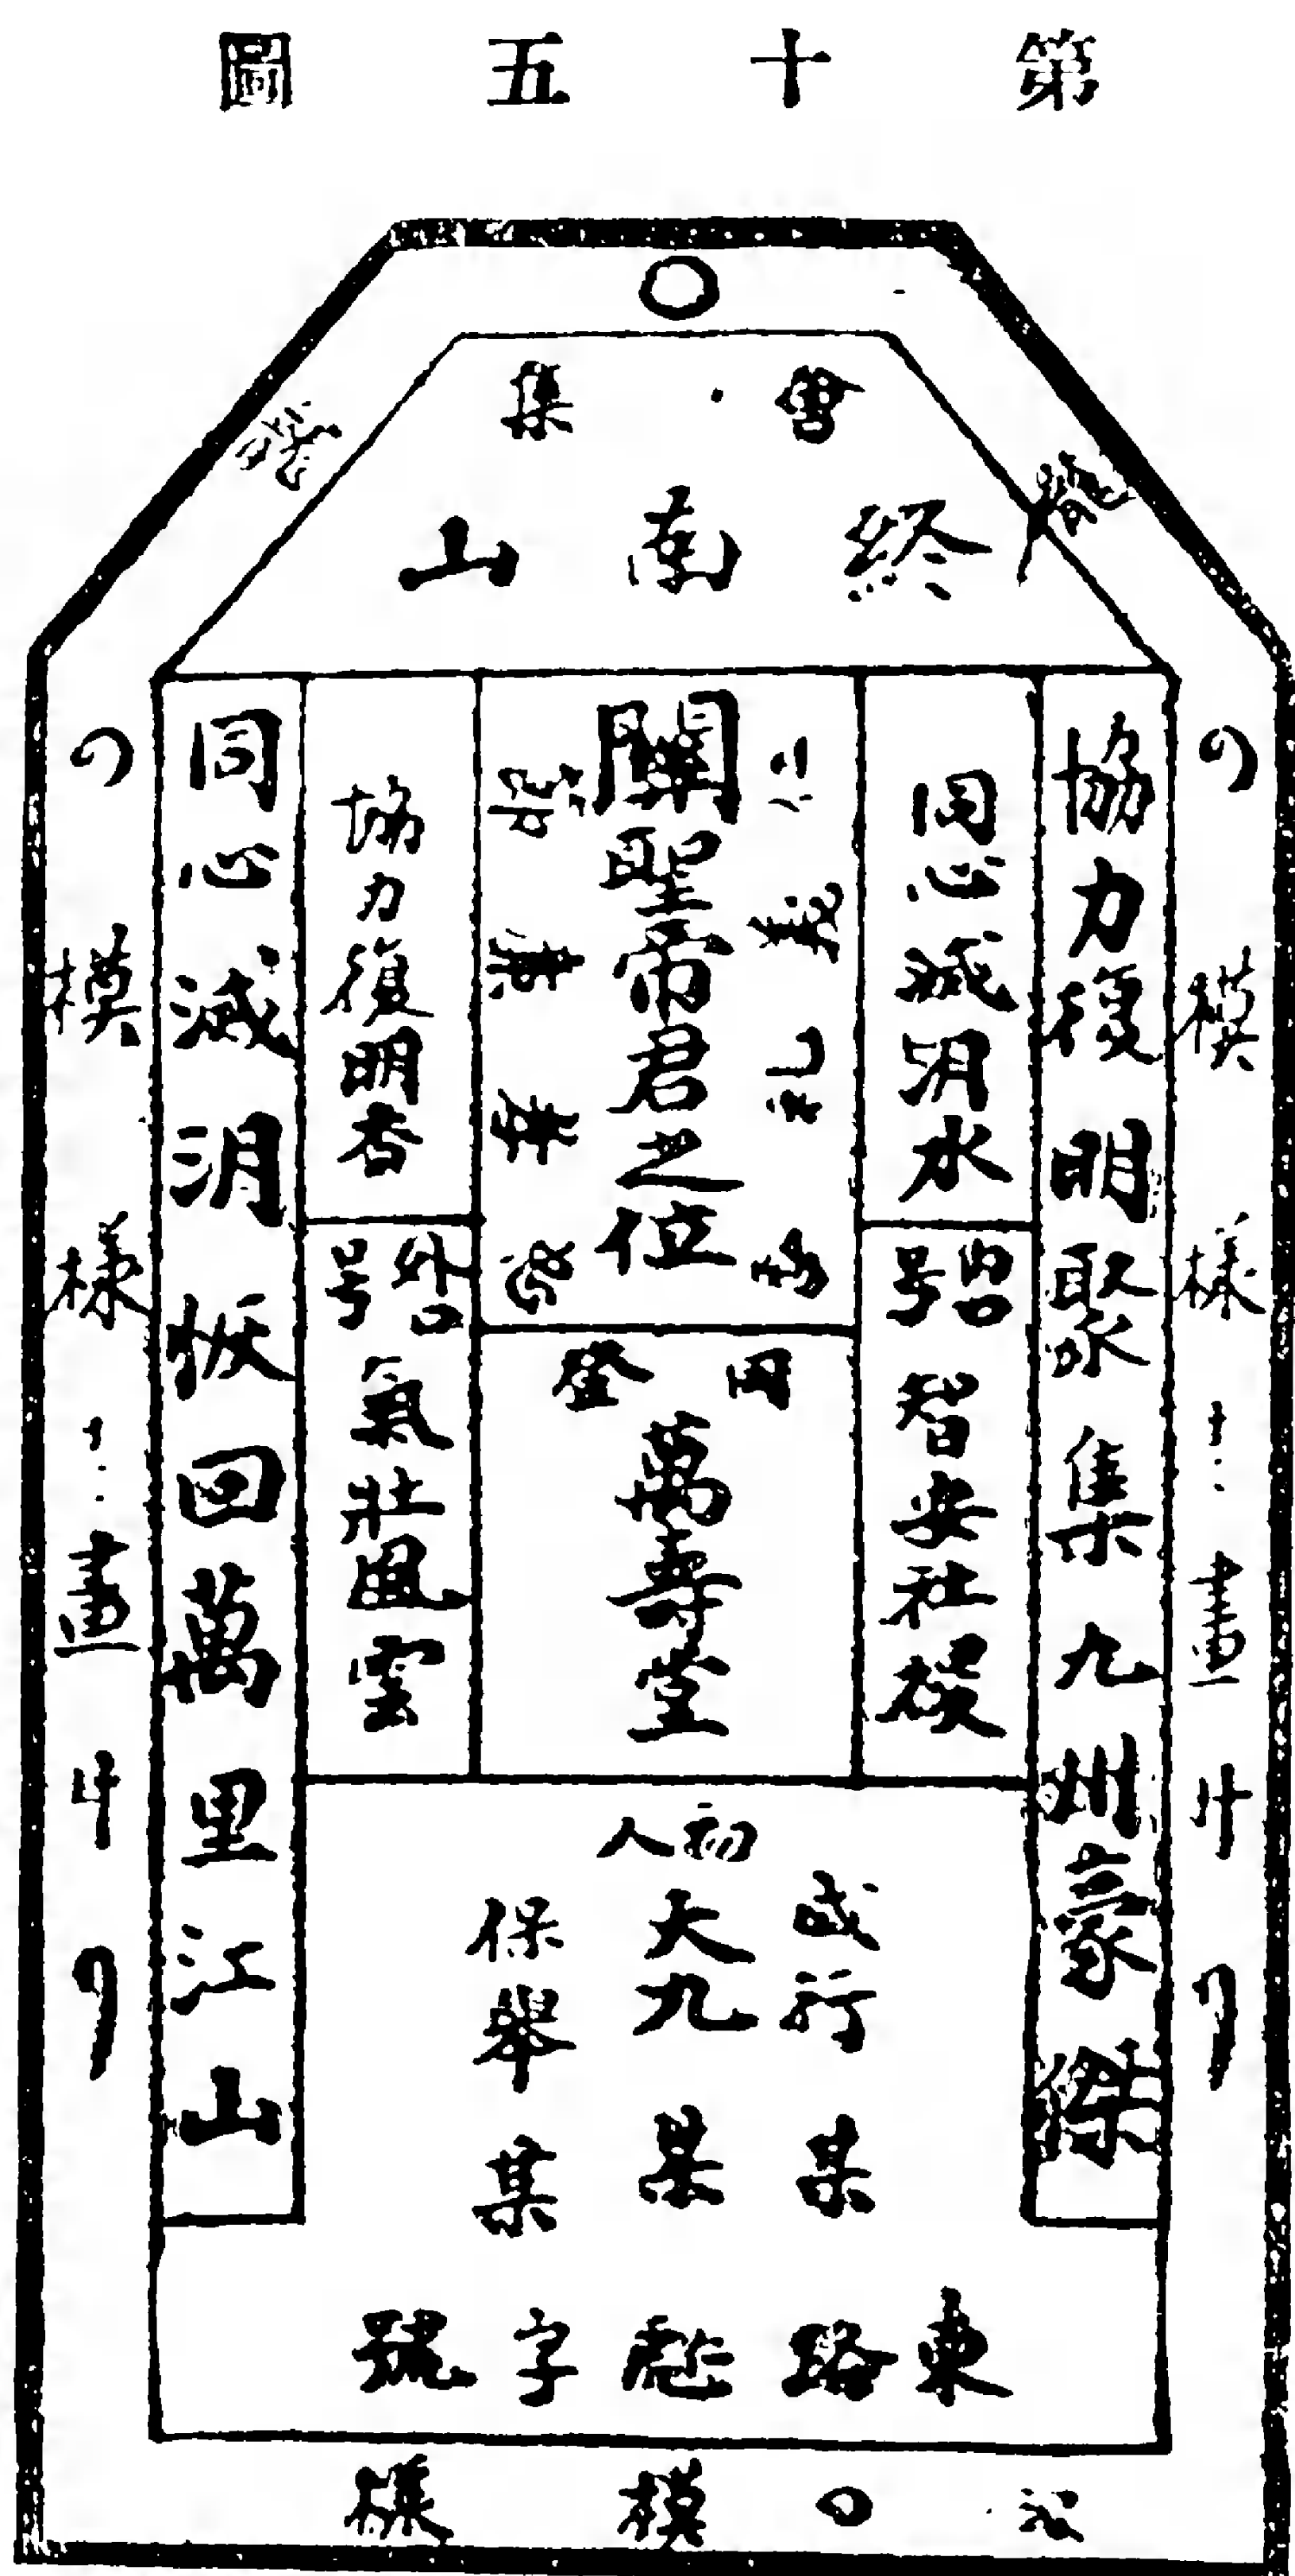 第十五圖
會集
終南山
龍
の模樣ヲ畫ケリ
協力復明聚集九州豪傑
同心滅泪水
内口号
智安社稷
關聖帝君之位
同登
萬壽堂
協力復明香
外口号
氣壯風雲
同心滅泪恢回萬里江山
の模樣ヲ畫ケリ
初人
咸行某
大九某
保舉某
東路彪字號
の模樣